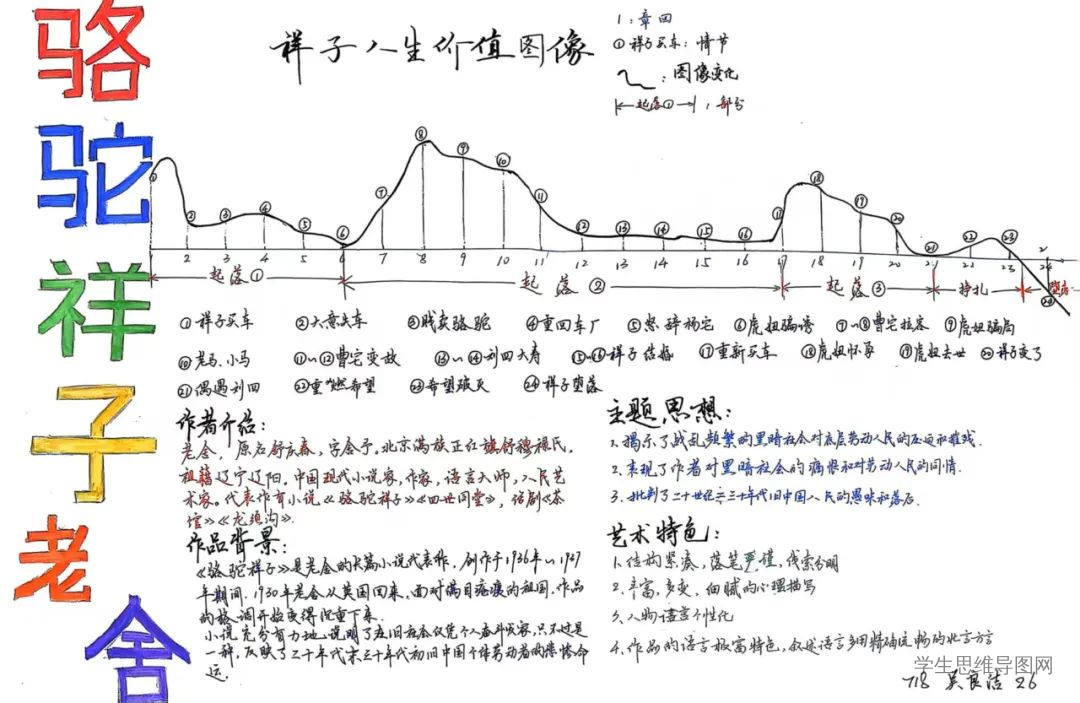 骆
驼
祥
子
老
舍
祥子人生价值图像
1：章回
①祥子买车：情节
：图像变化
起落①：部分
① ② ③ ④ ⑤ ⑥ ⑦ ⑧ ⑨ ⑩ ⑪ ⑫ ⑬ ⑭ ⑮ ⑯ ⑰ ⑱ ⑲ ⑳ ㉑ ㉒ ㉓ ㉔
1 2 3 4 5 6 7 8 9 10 11 12 13 14 15 16 17 18 19 20 21 22 23 24
起落① 起落② 起落③ 挣扎 堕落
①祥子买车 ②大意失车 ③贱卖骆驼 ④重回车厂 ⑤怒辞杨宅 ⑥虎妞骗诱 ⑦~⑧曹宅拉客 ⑨虎妞骗局
⑩老马、小马 ⑪~⑫曹宅变故 ⑬~⑭刘四大寿 ⑮~⑯祥子结婚 ⑰重新买车 ⑱虎妞怀孕 ⑲虎妞去世 ⑳祥子变了
㉑偶遇刘四 ㉒重燃希望 ㉓希望破灭 ㉔祥子堕落
作者介绍：
老舍，原名舒庆春，字舍予。北京满族正红旗舒穆禄氏，
祖籍辽宁辽阳。中国现代小说家，作家，语言大师，人民艺
术家。代表作有小说《骆驼祥子》《四世同堂》，话剧《茶
馆》《龙须沟》.
作品背景：
《骆驼祥子》是老舍的长篇小说代表作，创作于1936年~1937
年期间.1930年老舍从英国回来，面对满目疮痍的祖国.作品
的格调开始变得沉重下来.
小说充分有力地说明了在旧社会仅凭个人奋斗发家，只不过是
一种，反映了二十年代末三十年代初旧中国个体劳动者的悲惨命
运.
主题思想：
1.揭示了战乱频繁的黑暗社会对底层劳动人民的压迫和摧残.
2.表现了作者对黑暗社会的痛恨和对劳动人民的同情.
3.批判了二十世纪二三十年代旧中国人民的愚昧和落后.
艺术特色：
1.结构紧凑，落笔严谨，线索分明
2.丰富，多变，细腻的心理描写
3.人物语言个性化
4.作品的语言极富特色，叙述语言多用精确流畅的北京方言
学生思维导图网
718 吴良洁 26